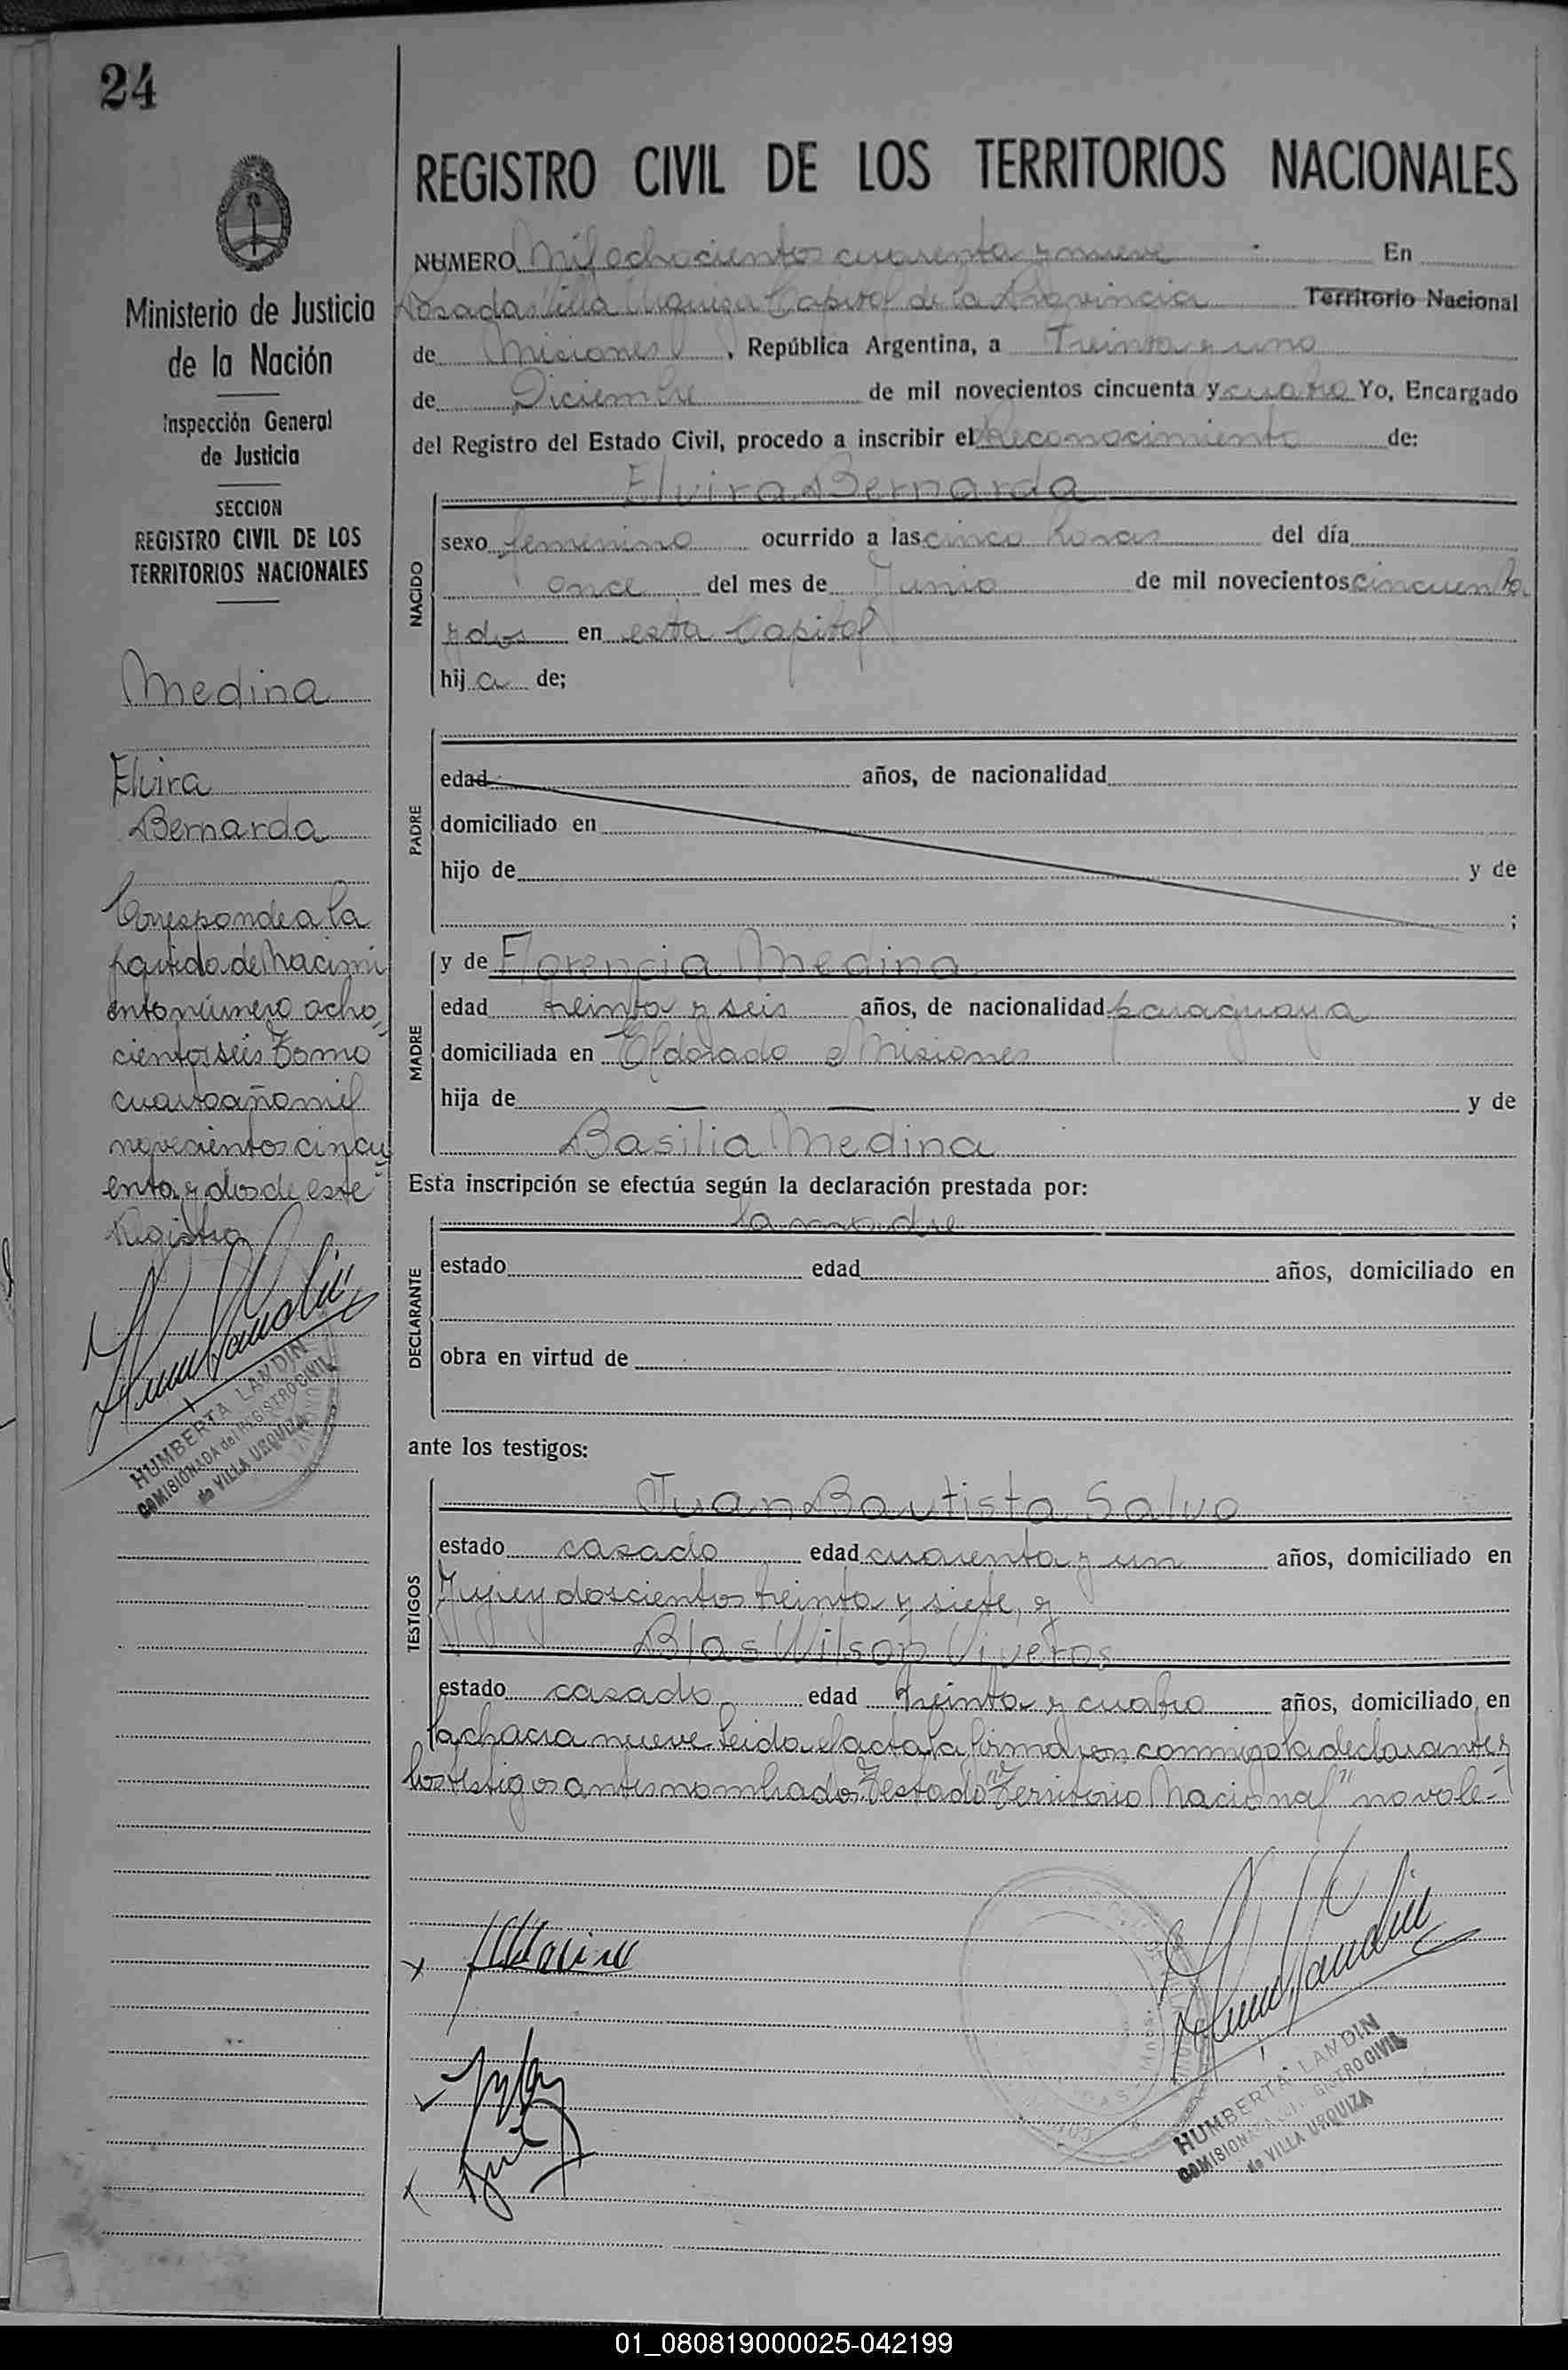 24
Ministerio de Justicia
de la Nación
Inspección General
de Justicia
SECCION
REGISTRO CIVIL DE LOS
TERRITORIOS NACIONALES
Medina
Elvira
Bernarda
Corresponde a la
partida de Nacimi
ento número ocho
cientos seis Tomo
cuarto año mil
novecientos cincu
enta y dos de este
Registro
HUMBERTA LANDIN
COMISIONADA del REGISTRO CIVIL
de VILLA URQUIZA
REGISTRO CIVIL DE LOS TERRITORIOS NACIONALES
NUMERO Mil ochocientos cuarenta y nueve En
Posadas Villa Urquiza Capital de la Provincia Territorio Nacional
de Misiones, República Argentina, a Treinta y uno
de Diciembre de mil novecientos cincuenta y cuatro Yo, Encargado
del Registro del Estado Civil, procedo a inscribir el Reconocimiento de:
Elvira Bernarda
NACIDO
sexo femenino ocurrido a las cinco horas del día
once del mes de Junio de mil novecientos cincuenta
y dos en esta Capital
hija de;
PADRE
edad años, de nacionalidad
domiciliado en
hijo de y de
;
y de Florencia Medina
MADRE
edad treinta y seis años, de nacionalidad paraguaya
domiciliada en Eldorado Misiones
hija de — — y de
Basilia Medina
Esta inscripción se efectúa según la declaración prestada por:
la madre
DECLARANTE
estado edad años, domiciliado en
obra en virtud de
ante los testigos:
Juan Bautista Salvo
TESTIGOS
estado casado edad cuarenta y un años, domiciliado en
Jujuy doscientos treinta y siete, y
Blas Wilson Viveros
estado casado edad treinta y cuatro años, domiciliado en
la chacra nueve. Leida el acta la firmaron conmigo la declarante y
los testigos antes nombrados. Testado "Territorio Nacional" no vale-
HUMBERTA LANDIN
COMISIONADA del REGISTRO CIVIL
de VILLA URQUIZA
01_080819000025-042199